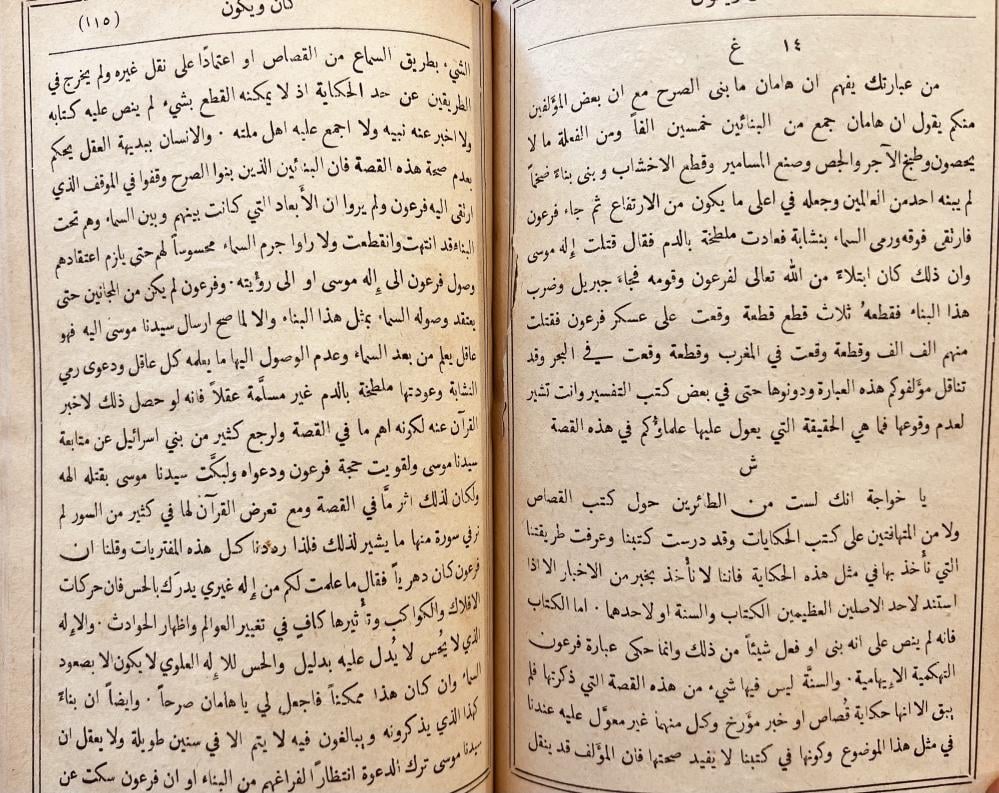 ١٤ غ
من عبارتك يفهم ان هامان ما بنى الصرح مع ان بعض المؤلفين
منكم يقول ان هامان جمع من البنائين خمسين الفاً ومن الفعلة ما لا
يحصون وطبخ الآجر والجص وصنع المسامير وقطع الاخشاب وبنى بناءً ضخماً
لم يبنه احد من العالمين وجعله في اعلى ما يكون من الارتفاع ثم جاء فرعون
فارتقى فوقه ورمى السماء بنشابة فعادت ملطخة بالدم فقال قتلت إله موسى
وان ذلك كان ابتلاءً من الله تعالى لفرعون وقومه فجاء جبريل وضرب
هذا البناء فقطعهُ ثلاث قطع قطعة وقعت على عسكر فرعون فقتلت
منهم الف الف وقطعة وقعت في المغرب وقطعة وقعت في البحر وقد
تناقل مؤلفوكم هذه العبارة ودونوها حتى في بعض كتب التفسير وانت تشير
لعدم وقوعها فما هي الحقيقة التي يعول عليها علماؤكم في هذه القصة
ش
يا خواجة انك لست من الطائرين حول كتب القصاص
ولا من المتهافتين على كتب الحكايات وقد درست كتبنا وعرفت طريقتنا
التي نأخذ بها في مثل هذه الحكاية فاننا لا نأخذ بخبر من الاخبار الا اذا
استند لاحد الاصلين العظيمين الكتاب والسنة او لاحدهما . اما الكتاب
فانه لم ينص على انه بنى او فعل شيئاً من ذلك وانما حكى عبارة فرعون
التهكمية الايهامية . والسنَّة ليس فيها شيء من هذه القصة التي ذكرتها فلم
يبق الا انها حكاية قُصاص او خبر مؤرخ وكل منهما غير معوَّل عليه عندنا
في مثل هذا الموضوع وكونها في كتبنا لا يفيد صحتها فان المؤلف قد ينقل
كان ويكون
(١١٥)
الشيء بطريق السماع من القصاص او اعتمادًا على نقل غيره ولم يخرج في
الطريقين عن حد الحكاية اذ لا يمكنه القطع بشيء لم ينص عليه كتابه
ولا اخبر عنه نبيه ولا اجمع عليه اهل ملته . والانسان ببديهة العقل يحكم
بعدم صحة هذه القصة فان البنائين الذين بنوا الصرح وقفوا في الموقف الذي
ارتقى اليه فرعون ولم يروا ان الأبعاد التي كانت بينهم وبين السماء وهم تحت
البناء قد انتهت وانقطعت ولا راوا جرم السماء محسوساً لهم حتى يلزم اعتقادهم
وصول فرعون الى إله موسى او الى رؤيته . وفرعون لم يكن من المجانين حتى
يعتقد وصوله السماء بمثل هذا البناء والا لما صح ارسال سيدنا موسى اليه فهو
عاقل يعلم من بعد السماء وعدم الوصول اليها ما يعلمه كل عاقل ودعوى رمي
النشابة وعودتها ملطخة بالدم غير مسلَّمة عقلاً فانه لو حصل ذلك لاخبر
القرآن عنه لكونه اهم ما في القصة ولرجع كثير من بني اسرائيل عن متابعة
سيدنا موسى ولقويت حجة فرعون ودعواه ولبكَّت سيدنا موسى بقتله الهه
ولكان لذلك اثر مَّا في القصة ومع تعرض القرآن لها في كثير من السور لم
نر في سورة منها ما يشير لذلك فلذا رددنا كل هذه المفتريات وقلنا ان
فرعون كان دهرياً فقال ما علمت لكم من إله غيري يدرَك بالحس فان حركات
الافلاك والكواكب وتأثيرها كافٍ في تغيير العوالم واظهار الحوادث . والإله
الذي لا يُحس لا يُدل عليه بدليل والحس للإله العلوي لا يكون الا بصعود
السماء وان كان هذا ممكناً فاجعل لي يا هامان صرحاً . وايضاً ان بناءً
كهذا الذي يذكرونه ويبالغون فيه لا يتم الا في سنين طويلة ولا يعقل ان
سيدنا موسى ترك الدعوة انتظاراً لفراغهم من البناء او ان فرعون سكت عن